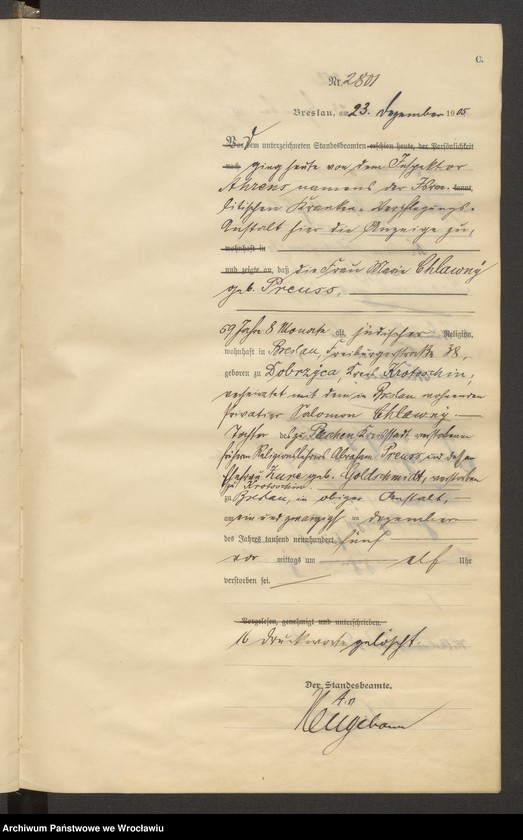 C.
Nr. 2801
Breslau, am 23. Dezember 1905
Vor dem unterzeichneten Standesbeamten erschien heute, der Persönlichkeit
nach ging heute von dem Inspektor
Ahrens namens der Israe- kannt,
litischen Kranken-Verpflegungs-
Anstalt hier die Anzeige zu,
wohnhaft in
und zeigte an, daß die Frau Marie Chlawny
geb. Preuss,
59 Jahre 8 Monate alt, jüdischer Religion,
wohnhaft in Breslau, Freiburgerstraße 38,
geboren zu Dobrzyca, Kreis Krotoschin,
verheiratet mit dem in Breslau wohnenden
Privatier Salomon Chlawny.
Tochter des zu Kreisstadt, verstorbenen
früheren Religionslehrers Abraham Preuss und dessen
Ehefrau geb. Goldschmidt, verstorben
zu Krotoschin.
zu Breslau, in obiger Anstalt,
am ein und zwanzigsten Dezember
des Jahres tausend neunhundert fünf
vor mittags um elf Uhr
verstorben sei.
Vorgelesen, genehmigt und unterschrieben.
16 Druckworte gelöscht.
Der Standesbeamte.
Archiwum Państwowe we Wrocławiu